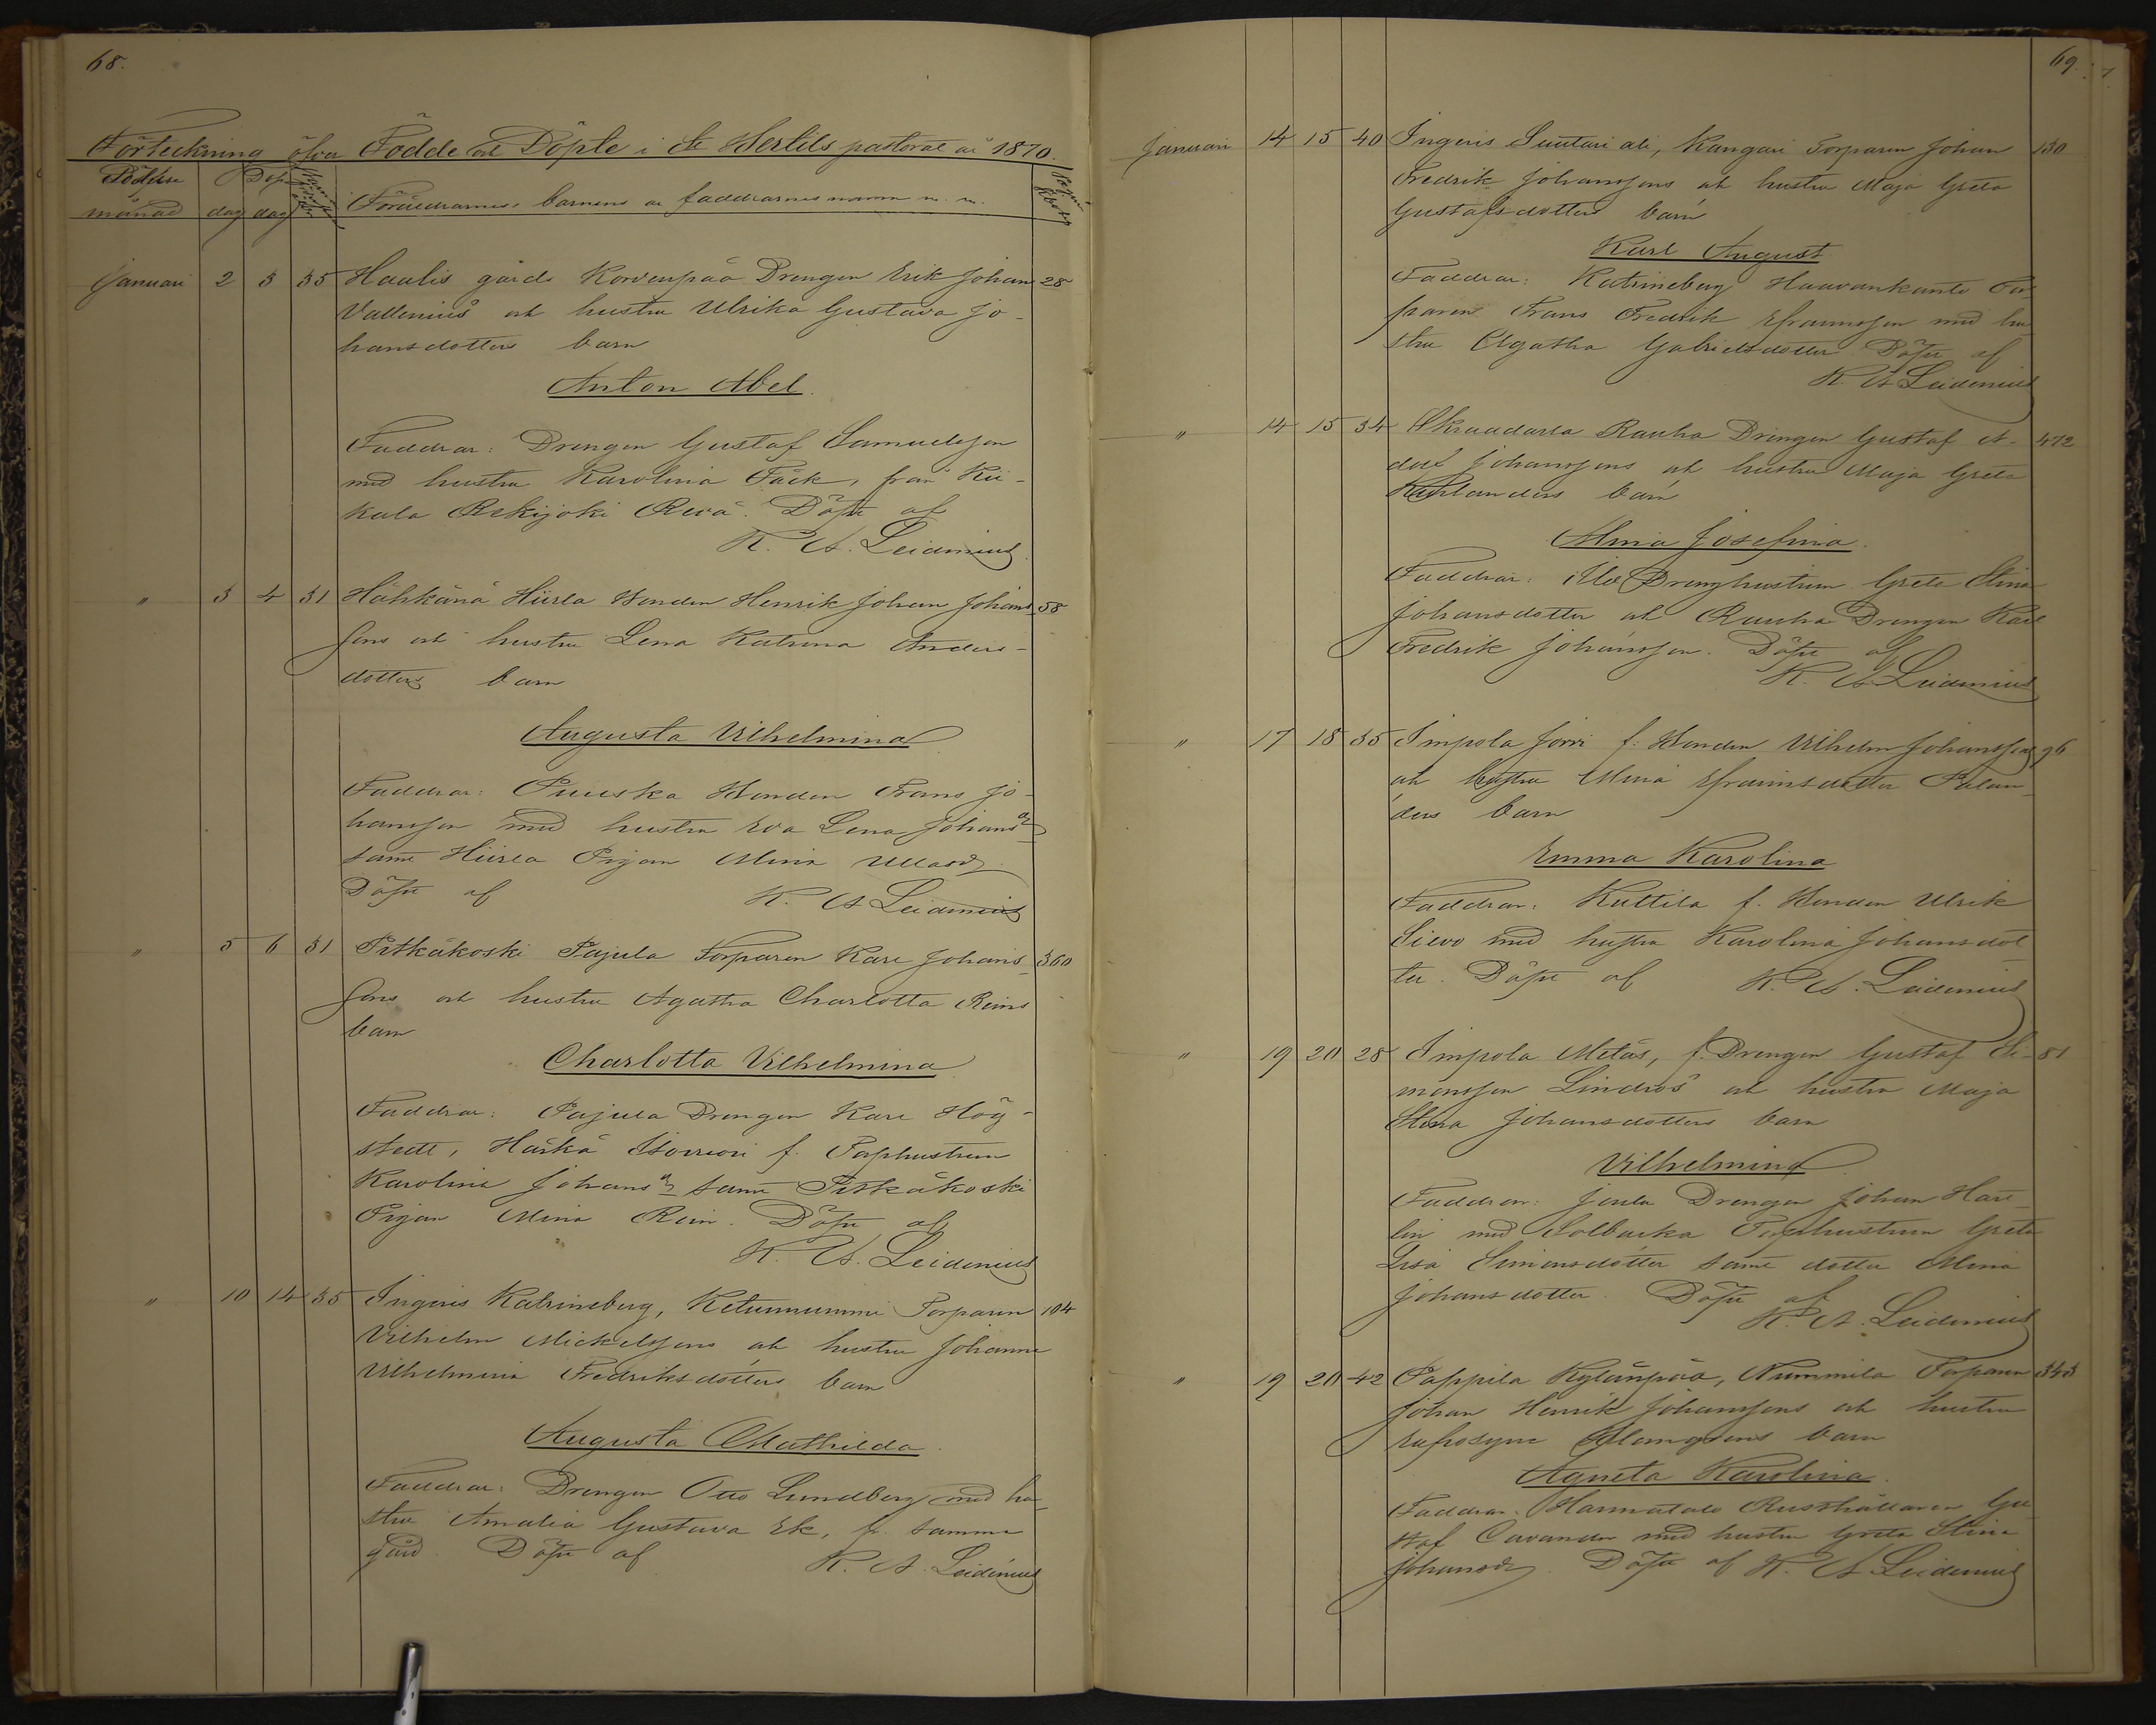 68.
Förteckning öfver Födde och Döpte i St Bertils pastorat år 1870.
Födelse Döp
månad dag dag Föräldrarnes, barnens och faddrarnes namn m. m.
Januari 2 3 35 Haalis gårds Korvenpää Drengen Erik Johan 28
Vallenius och hustru Ulrika Gustava Jo-
hansdotters barn
Anton Abel
Faddrar: Drengen Gustaf Samuelsson
med hustru Karolina Fäck, från Kii-
kala Rekijoki Revä. Döpte af
K. A. Leidenius
" 3 4 31 Hähkänä Hiirla Bonden Henrik Johan Johans- 58
sons och hustru Lena Katrina Anders-
dotters barn
Augusta Vilhelmina
Faddrar: Bonden Frans Jo-
hansson med hustru Eva Lena Johansdr
samt Hiirla Pigan Mina
Döpte af K. A. Leidenius
" 5 6 31 Pitkäkoski Pajula Torparen Karl Johans- 360
sons och hustru Agatha Charlotta Reins
barn
Charlotta Vilhelmina
Faddrar: Pajula Drengen Karl Hög-
stedt, Härkä f. Torphustrun
Karolina Johansdr samt Pitkäkoski
Pigan Mina Rein. Döpte af
K. A. Leidenius
" 10 14 35 Ingeris Katrineberg, Ketunnummi Torparen 104
Vilhelm Mickelssons och hustru Johanna
Vilhelmina Fredriksdotters barn
Augusta Mathilda
Faddrar: Drengen Otto Lundberg med hu-
stru Amalia Gustava Ek, fr. samma
gård. Döpte af K. A. Leidenius
69.
Januari 14 15 40 Ingeris Suutari ali, Kangari Torparen Johan 130
Fredrik Johanssons och hustru Maja Greta
Gustafsdotters barn
Karl August
Faddrar: Katrineberg Haavankanto Tor-
paren Frans Fredrik Efraimsson med hu-
stru Agatha Gabrielsdotter. Döpte af
K. A. Leidenius
" 14 15 34 Skraadarla Rauha Drengen Gustaf A- 472
dolf Johanssons och hustru Maja Greta
Karlanders barn
Alma Josefina
Faddrar: Drenghustrun Greta Stina
Johansdotter och Rauha Drengen Karl
Fredrik Johansson. Döpte af
K. A. Leidenius
" 17 18 35 Impola Jorri f. Bonden Vilhelm Johanssons 96
och hustru Mina Efraimsdotter Palan-
ders barn
Emma Karolina
Faddrar: Kuttila f. Bonden Ulrik
Sievo med hustru Karolina Johansdot-
ter. Döpte af K. A. Leidenius
" 19 20 28 Impola Metäs, f. Drengen Gustaf Si- 81
monsson Lindros och hustru Maja
Stina Johansdotters barn
Vilhelmina
Faddrar: Joula Drengen Johan Hall-
lin med Solbacka Torphustrun Greta
Lisa Simonsdotter samt dotter Mina
Johansdotter. Döpte af
K. A. Leidenius
" 19 20 42 Pappila Kylänpää, Nummila Torparen 343
Johan Henrik Johanssons och hustru
Eufrosyne Malmgrens barn
Agneta Karolina
Faddrar: Rusthållaren Gu-
staf Cavander med hustru Greta Stina
Johansdr. Döpte af K. A. Leidenius